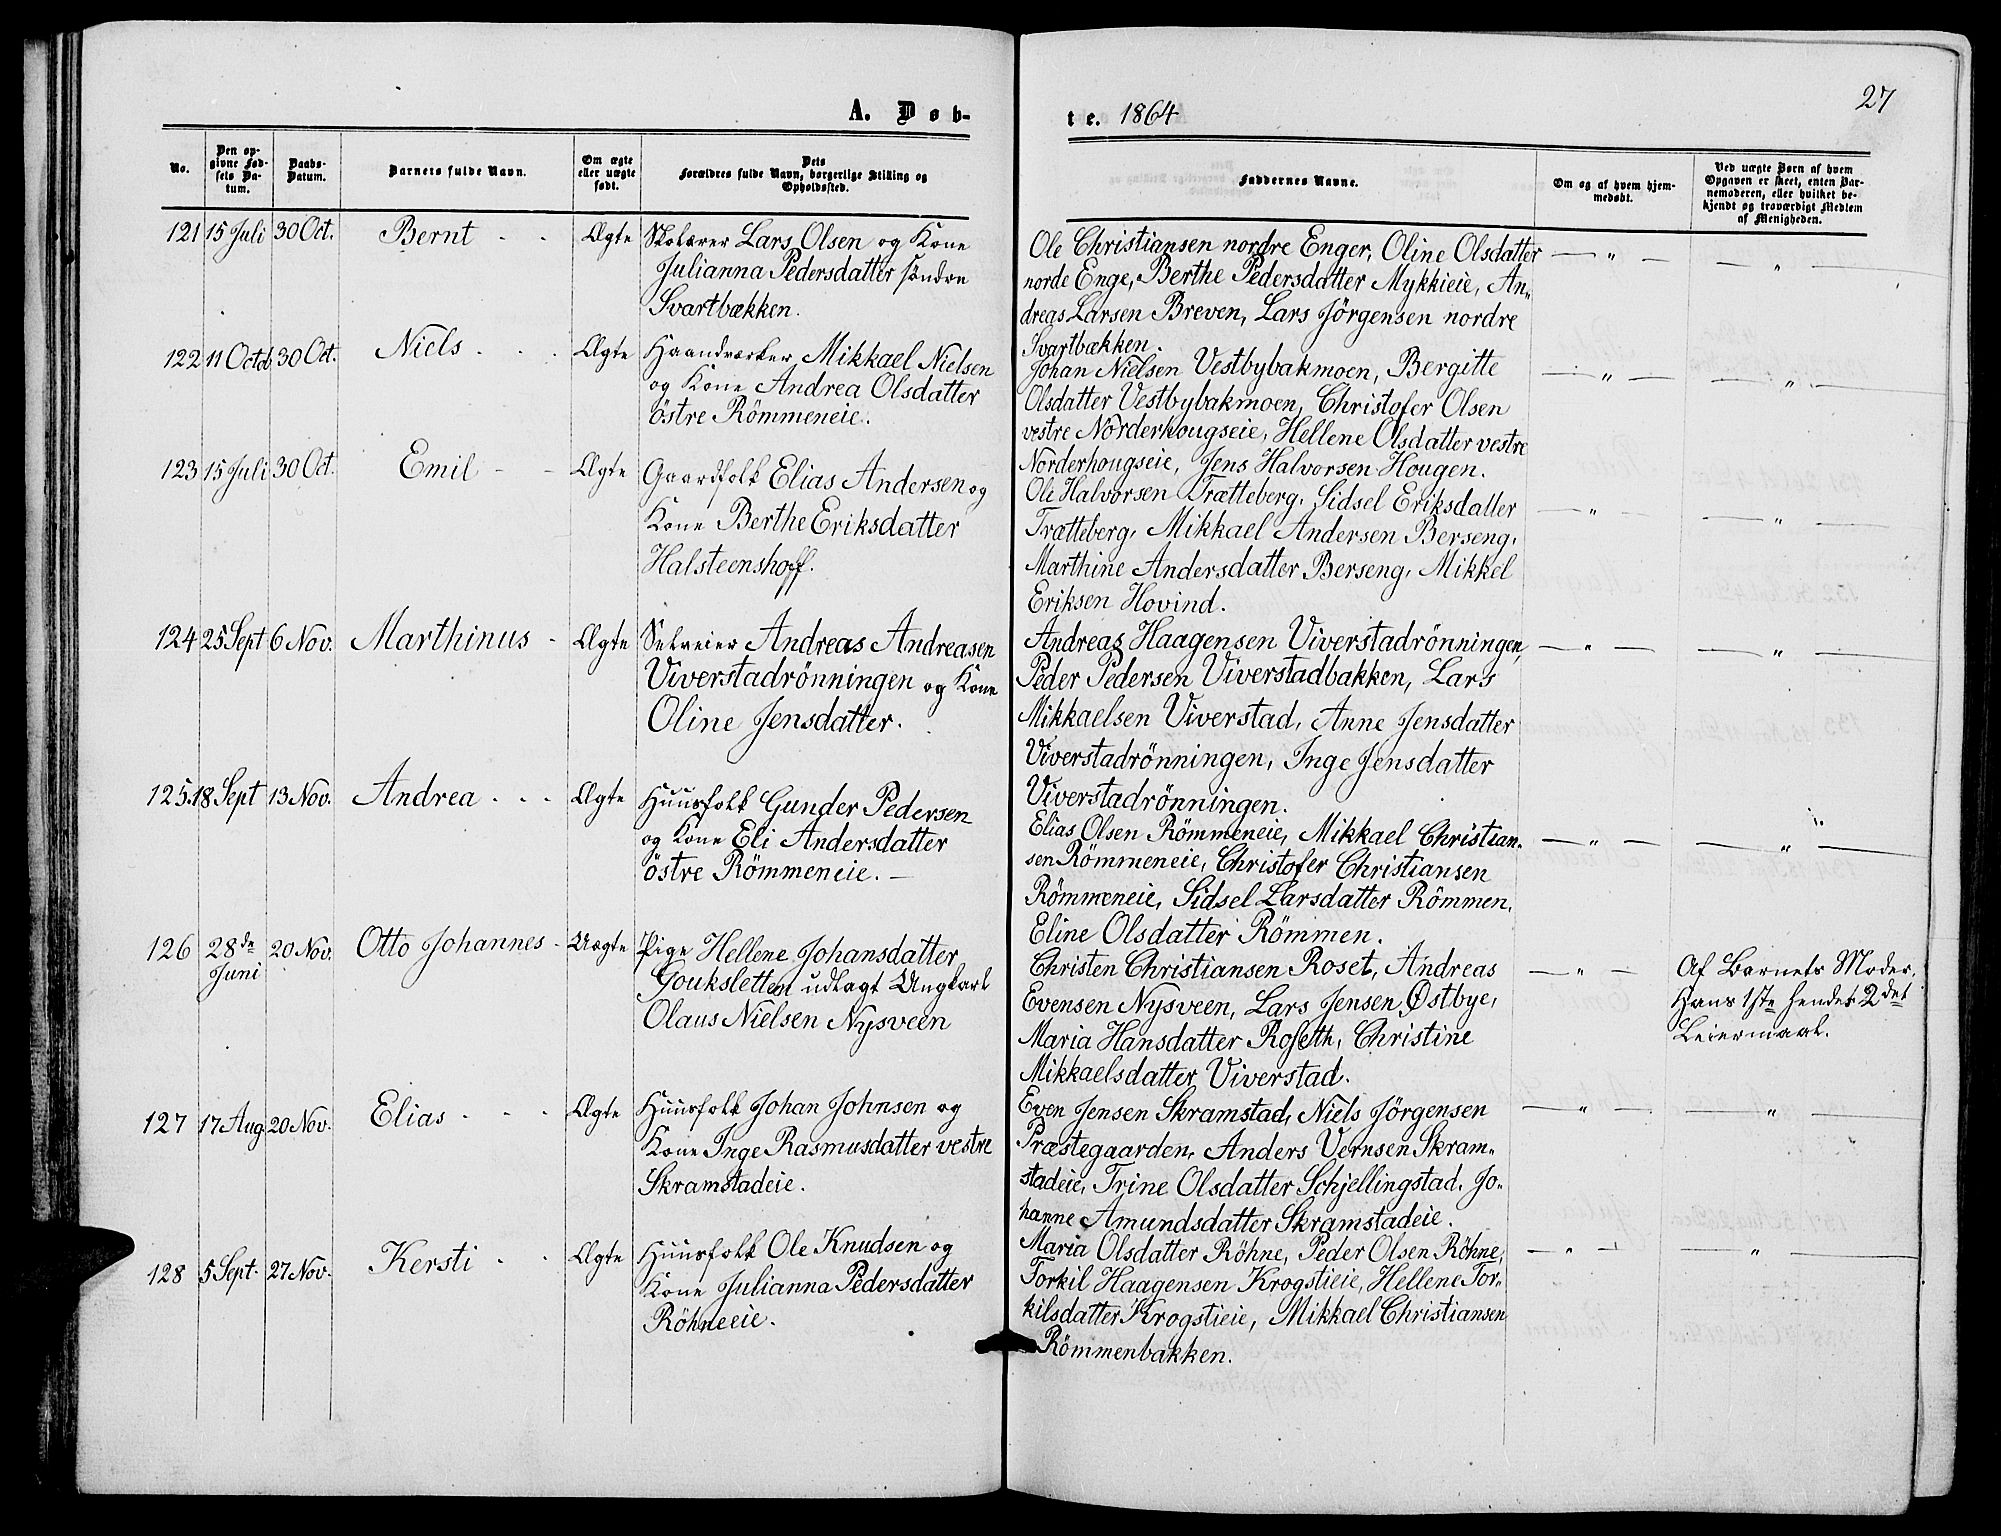 A. Døb-
No.
Den op-
givne Fød-
sels Da-
tum.
Daabs-
Datum.
Barnets fulde Navn.
Om ægte
eller uægte
født.
Dets
Forældres fulde Navn, borgerlige Stilling og
Opholdssted.
121 15 Juli 30 Oct. Bernt - - Ægte Skolærer Lars Olsen og Kone
Julianna Pedersdatter søndre
Svartbækken.
122 11 Octob 30 Oct. Niels - - - Ægte Haandværker Mikkael Nielsen
og Kone Andrea Olsdatter
östre Römmeneie.
123 15 Juli 30 Oct. Emil - - Ægte Gaardfolk Elias Andersen og
Kone Berthe Eriksdatter
Halsteenshoff.
124 25 Sept 6 Nov. Marthinus - Ægte Selveier Andreas Andreasen
Viverstadrönningen og Kone
Oline Jensdatter.
125. 18 Sept 13 Nov. Andrea - - - Ægte Huusfolk Gunder Pedersen
og Kone Eli Andersdatter
östre Römmeneie. -
126 28de
Juni 20 Nov. Otto Johannes - Uægte Pige Hellene Johansdatter
Gouksletten udlagt Ungkarl
Olaus Nielsen Nysveen
127 17 Aug 20 Nov. Elias - - - Ægte Huusfolk Johan Johnsen og
Kone Inge Rasmusdatter vestre
Skramstadeie.
128 5 Sept. 27 Nov. Kersti - - Ægte Huusfolk Ole Knudsen og
Kone Julianna Pedersdatter
Röhneeie.
te. 1864
27
Faddernes Navne.
Om og af hvem hjem-
medøbt.
Ved uægte Børn af hvem
Opgaven er skeet, enten Bar-
nemoderen, eller hvilket be-
kjendt og troværdigt Medlem
af Menigheden.
Ole Christiansen nordre Enger, Oline Olsdatter — " — — " —
norde Enge, Berthe Pedersdatter Mykkieie, An-
dreas Larsen Breven, Lars Jörgensen nordre
Svartbækken.
Johan Nielsen Vestbybakmoen, Bergitte — " — — " —
Olsdatter Vestbybakmoen, Christofer Olsen
vestre Norderhougseie, Hellene Olsdatter vestre
Norderhougseie, Jens Halvorsen Hougen.
Ole Halvorsen Trætteberg, Sidsel Eriksdatter — " — — " —
Trætteberg, Mikkael Andersen Berseng,
Marthine Andersdatter Berseng, Mikkel
Eriksen Hovind.
Andreas Haagensen Viverstadrönningen, — " — — " —
Peder Pedersen Viverstadbakken, Lars
Mikkaelsen Viverstad, Anne Jensdatter
Viverstadrönningen, Inge Jensdatter
Viverstadrönningen.
Elias Olsen Römmeneie, Mikkael Christian- — " — — " —
sen Römmeneie, Christofer Christiansen
Römmeneie, Sidsel Larsdatter Römmen,
Eline Olsdatter Römmen.
Christen Christiansen Roset, Andreas — " — Af Barnets Moder.
Evensen Nysveen, Lars Jensen Østbye, Hans 1ste hendes 2det
Maria Hansdatter Roseth, Christine Leiermaal.
Mikkaelsdatter Viverstad.
Even Jensen Skramstad, Niels Jörgensen — " — — " —
Præstegaarden, Anders Vernsen Skram-
stadeie, Trine Olsdatter Schjellingstad, Jo-
hanne Amundsdatter Skramstadeie.
Maria Olsdatter Röhne, Peder Olsen Röhne, — " — — " —
Torkil Haagensen Krogstieie, Hellene Tor-
kilsdatter Krogstieie, Mikkael Christiansen
Römmenbakken.